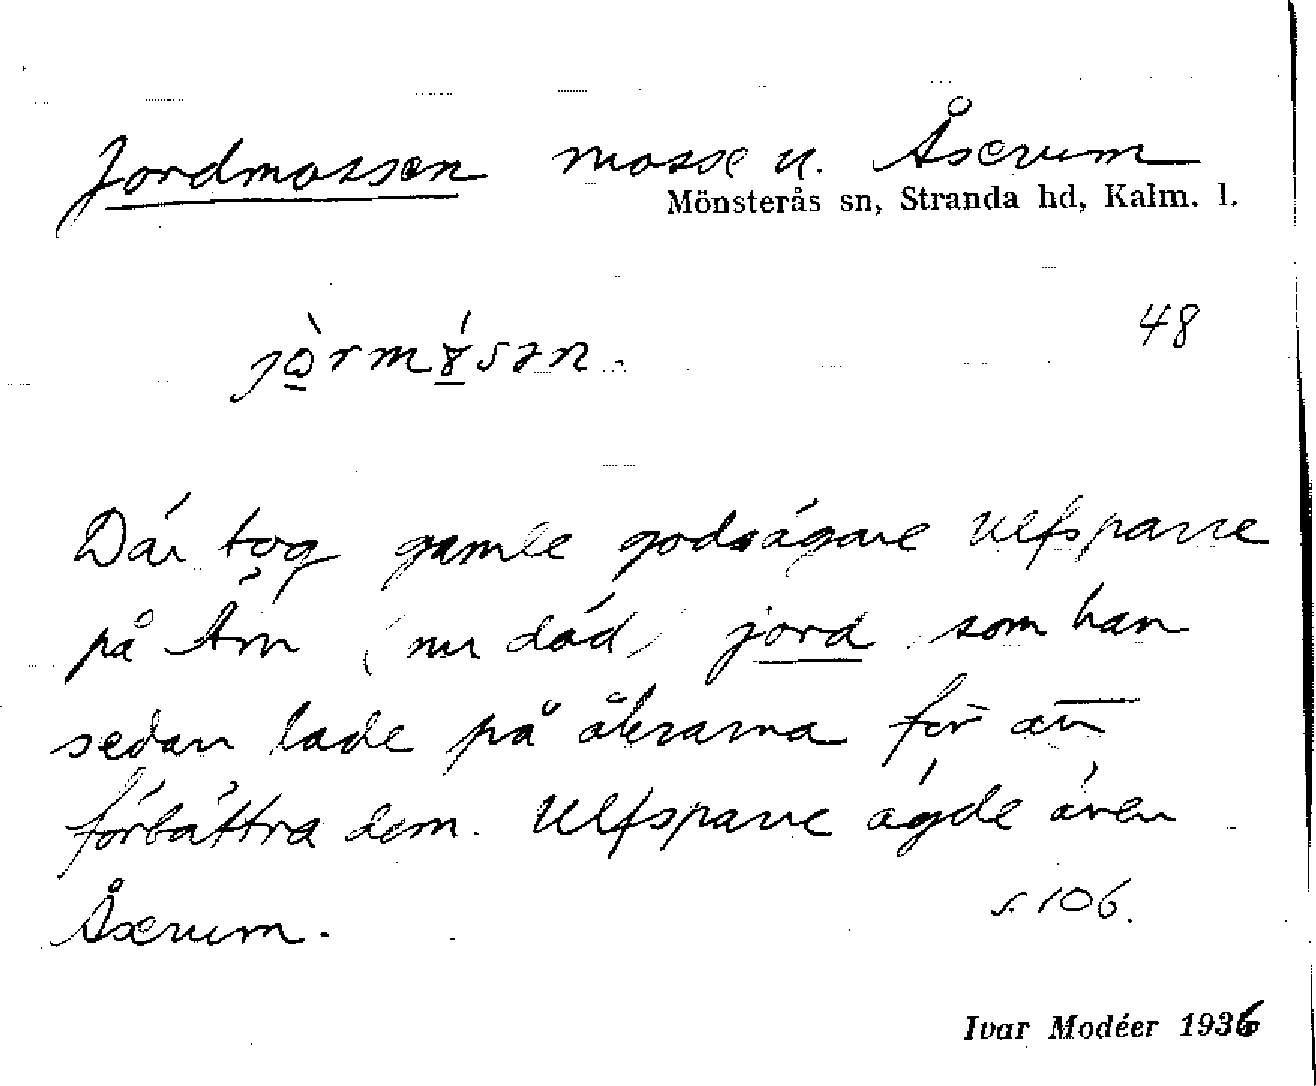 Jordmossen mosse u. Åserum
Mönsterås sn, Stranda hd, Kalm. l.
48
Där tog gamle godsägare Ulfsparre
på Äm (nu död) jord som han
sedan lade på åkrarna för att
förbättra dem. Ulfsparre ägde även
Åserum.
s. 106.
Ivar Modéer 1936